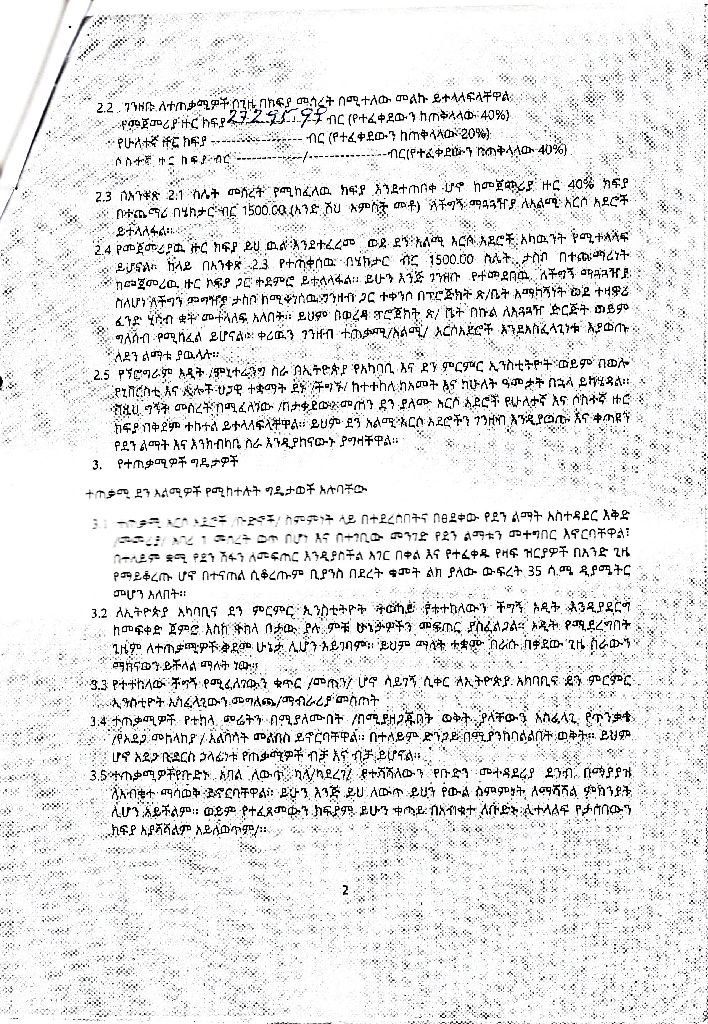 2.2 ገንዘቡ ለተጠቃሚዎች በጊዜ በክፍያ መሰረት በሚተለው መልኩ ይተላለፍላቸዋል
የምጀመሪያ ዙር ክፍያ 27295.97 ብር (የተፈቀደውን ከጠቅላላው 40%)
የሁለተኛ ዙር ክፍያ ------------------ ብር (የተፈቀደውን ከጠቅላላው 20%)
ሶስተኛ ዙር ክፍያ ብር -------------/---------------ብር(የተፈቀደውን ከጠቅላላው 40%)
2.3 በአንቀጽ 2.1 ስሌት መሰረት የሚከፈለዉ ክፍያ እንደተጠበቀ ሆኖ ከመጀመሪያ ዙር 40% ክፍያ
በተጨማሪ በሄክታር ብር 1500.00 (አንድ ሽህ አምስት መቶ) ለችግኝ ማጓጓዣያ ለአልሚ አርሶ አደሮች
ይተላለፋል።
2.4 የመጀመሪያዉ ዙር ክፍያ ይህ ዉል እንደተፈረመ ወደ ደን አልሚ አርሶ አደሮች አካዉንት የሚተላለፍ
ይሆናል። ከላይ በአንቀጽ 2.3 የተጠቀሰዉ በሄክታር ብር 1500.00 ስሌት ታስቦ በተጨማሪነት
ከመጀመሪዉ ዙር ክፍያ ጋር ተደምሮ ይተላለፋል። ይሁን እንጅ ገንዘቡ የተመደበዉ ለችግኝ ማጓጓዣያ
ስለሆነ ለችግኝ መግዣያ ታስቦ ከሚቀነሰዉ ገንዘብ ጋር ተቀንሶ በፕሮጀክት ጽ/ቤት አማካኝነት ወደ ተዘዋሪ
ፈንድ ሂሳብ ቋት መተላለፍ አለበት። ይህም በወረዳ ፕሮጀክት ጽ/ ቤት በኩል ለአጓጓዡ ድርጅት ወይም
ግለሰብ የሚከፈል ይሆናል። ቀሪዉን ገንዘብ ተጠቃሚ/አልሚ/ አርሶአደሮች እንደአስፈላጊነቱ እያወጡ
ለደን ልማቱ ያዉላሉ።
2.5 የፕሮግራም ኦዲት /ሞኒተሪንግ ስራ በኢትዮጵያ የአካባቢ እና ደን ምርምር ኢንስቲትዮት ወይም በወሎ
የኒቨርስቲ እና ሌሎች ህጋዊ ተቋማት ደኑ /ችግኙ/ ከተተከለ ከአመት እና ከሁለት ዓመታት በኋላ ይካሄዳል።
በዚህ ግኝት መሰረት በሚፈለገው /በታቀደው/ መጠን ደን ያለሙ አርሶ አደሮች የሁለተኛ እና ሶስተኛ ዙር
ክፍያ በቅደም ተከተል ይተላለፍላቸዋል። ይህም ደን አልሚ አርሶ አደሮችን ገንዘብ እንዲያወጡ እና ቀጣዩን
የደን ልማት እና እንክብካቤ ስራ እንዲያከናውኑ ያግዛቸዋል።
3. የተጠቃሚዎች ግዴታዎች
ተጠቃሚ ደን አልሚዎች የሚከተሉት ግዴታወች አሉባቸው
3.1 ተጠቃሚ አርሶ አደሮች /ቡድኖች/ ስምምነት ላይ በተደረሰበትና በፀደቀው የደን ልማት አስተዳደር እቅድ
/መመሪያ/ አባሪ 1 መሰረት ወጥ በሆነ እና በተገቢው መንገድ የደን ልማቱን መተግበር ይኖርባቸዋል፣
በተለይም ቋሚ የደን ሽፋን ለመፍጠር እንዲያስችል አገር በቀል እና የተፈቀዱ የዛፍ ዝርያዎች በአንድ ጊዜ
የማይቆረጡ ሆኖ በተናጠል ሲቆረጡም ቢያንስ በደረት ቁመት ልክ ያለው ውፍረት 35 ሳ.ሜ ዲያሜትር
መሆን አለበት።
3.2 ለኢትዮጵያ አካባቢና ደን ምርምር ኢንስቲትዮት የተተከለውን ችግኝ ኦዲት እንዲያደርግ
ከመፍቀድ ጀምሮ እስከ ተከላ ቦታው ያሉ ምቹ ሁኔታዎችን መፍጠር ያስፈልጋል። ኦዲት የሚደረግበት
ጊዜም ለተጠቃሚዎች ቅድመ ሁኔታ ሊሆን አይገባም። ይህም ማለት ተቋሙ በራሱ በቀደው ጊዜ ስራውን
ማከናወን ይችላል ማለት ነው።
3.3 የተተከለው ችግኝ የሚፈለገውን ቁጥር /መጠን/ ሆኖ ሳይገኝ ሲቀር ለኢትዮጵያ አካባቢና ደን ምርምር
ኢንስቲዮት አስፈላጊውን መግለጫ/ማብራሪያ መስጠት
3.4 ተጠቃሚዎች የተከላ መሬትን በሚያለሙበት /በሚያዘጋጁበት ወቅት ያላቸውን አስፈላጊ የጥንቃቄ
/የአደጋ መከላከያ / አልባሳት መልበስ ይኖርባቸዋል። በተለይም ድንጋይ በሚያንከባልልበት ወቅት። ይህም
ሆኖ አደጋ ቢደርስ ኃላፊነቱ የጠቃሚዎች ብቻ እና ብቻ ይሆናል።
3.5 ተጠቃሚዎች የቡድኑ አባል ለውጥ ካለ/ካደረገ/ የተሻሻለውን የቡድን መተዳደሪያ ደንብ በማያያዝ
ለአብቁተ ማሳወቅ ይኖርባቸዋል። ይሁን እንጅ ይህ ለውጥ ይህን የውል ስምምነት ለማሻሻል ምክንያት
ሊሆን አይችልም። ወይም የተፈጸመውን ክፍያም ይሁን ቀጣይ በአብቁተ ለቡድኑ ሊተላለፍ የታሰበውን
ክፍያ አያሻሽልም አይለወጥም/።
2